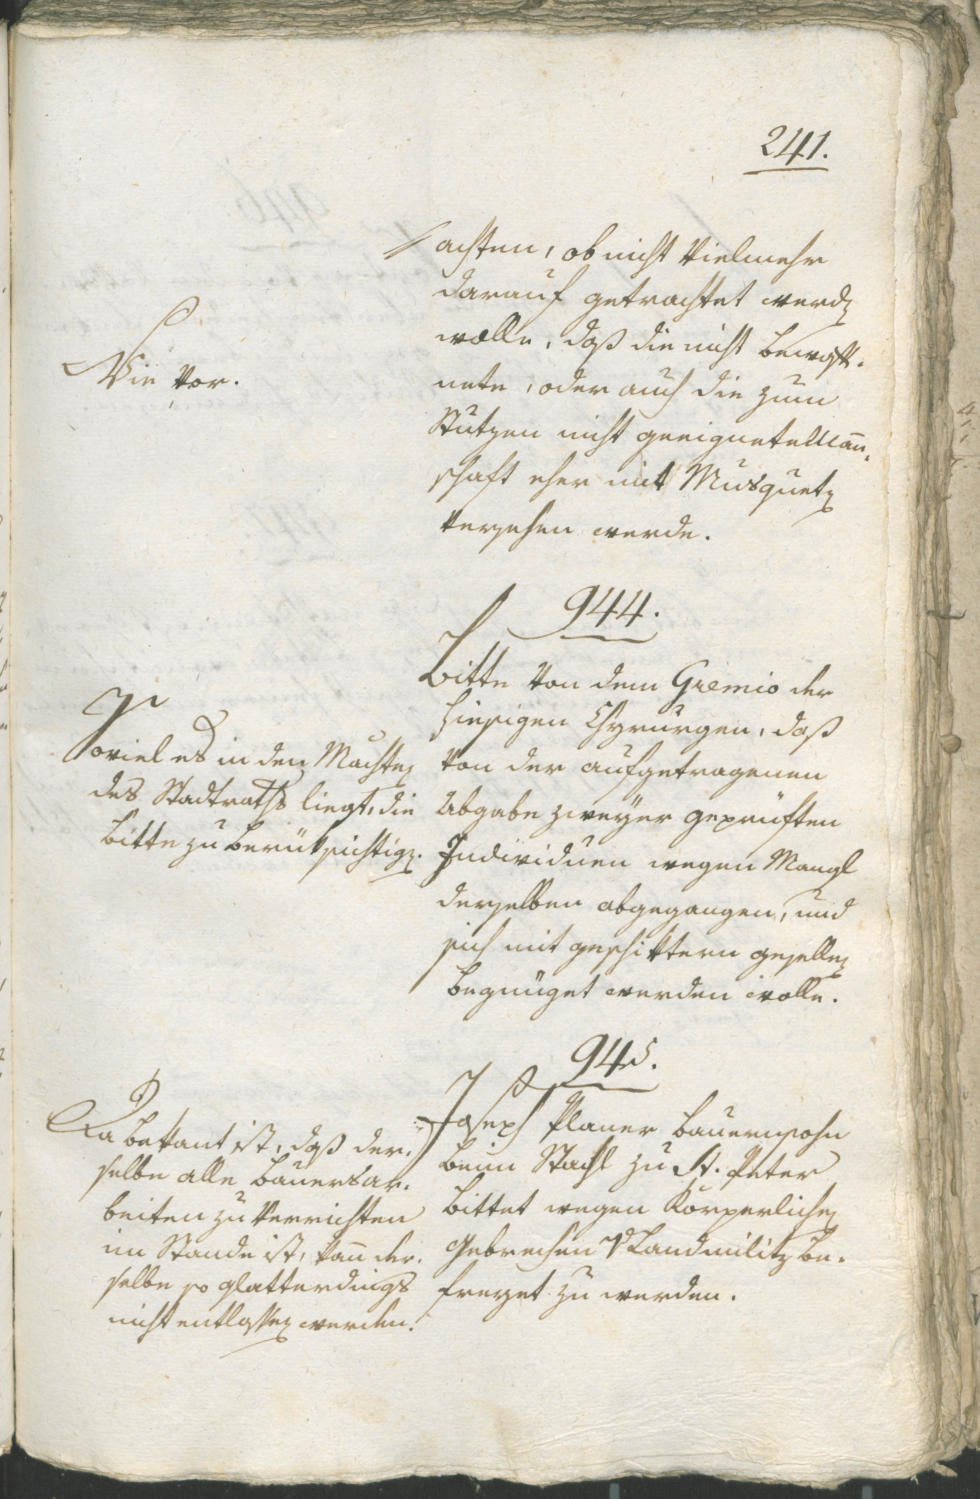 241.
achten, ob nicht vielmehr
darauf getrachtet werden
wolle, daß die nicht bewaff-
nete, oder auch die zum
Stutzen nicht geeignete Mann-
schaft eher mit Musqueten
versehen werde.
Wie vor.
944.
Bitte von dem Gremio der
hiesigen Chyrurgen, daß
von der aufgetragenen
Abgabe zweyer geprüften
Individuen wegen Mangl
derselben abgegangen, und
sich mit geschiktern gesellen
begnüget werden wolle.
Soviel es in den Mächten
des Stadtraths liegt, die
Bitte zu berüksichtigen.
945.
Joseph Planer Bauernsohn
beim Stachl zu St. Peter
bittet wegen Körperlichen
Gebrechen v Landmilitz be-
freyet zu werden.
Da bekant ist, daß der-
selbe alle Bauersar-
beiten zu verrichten
im Stande ist, kann der-
selbe so glatterdings
nicht entlassen werden.